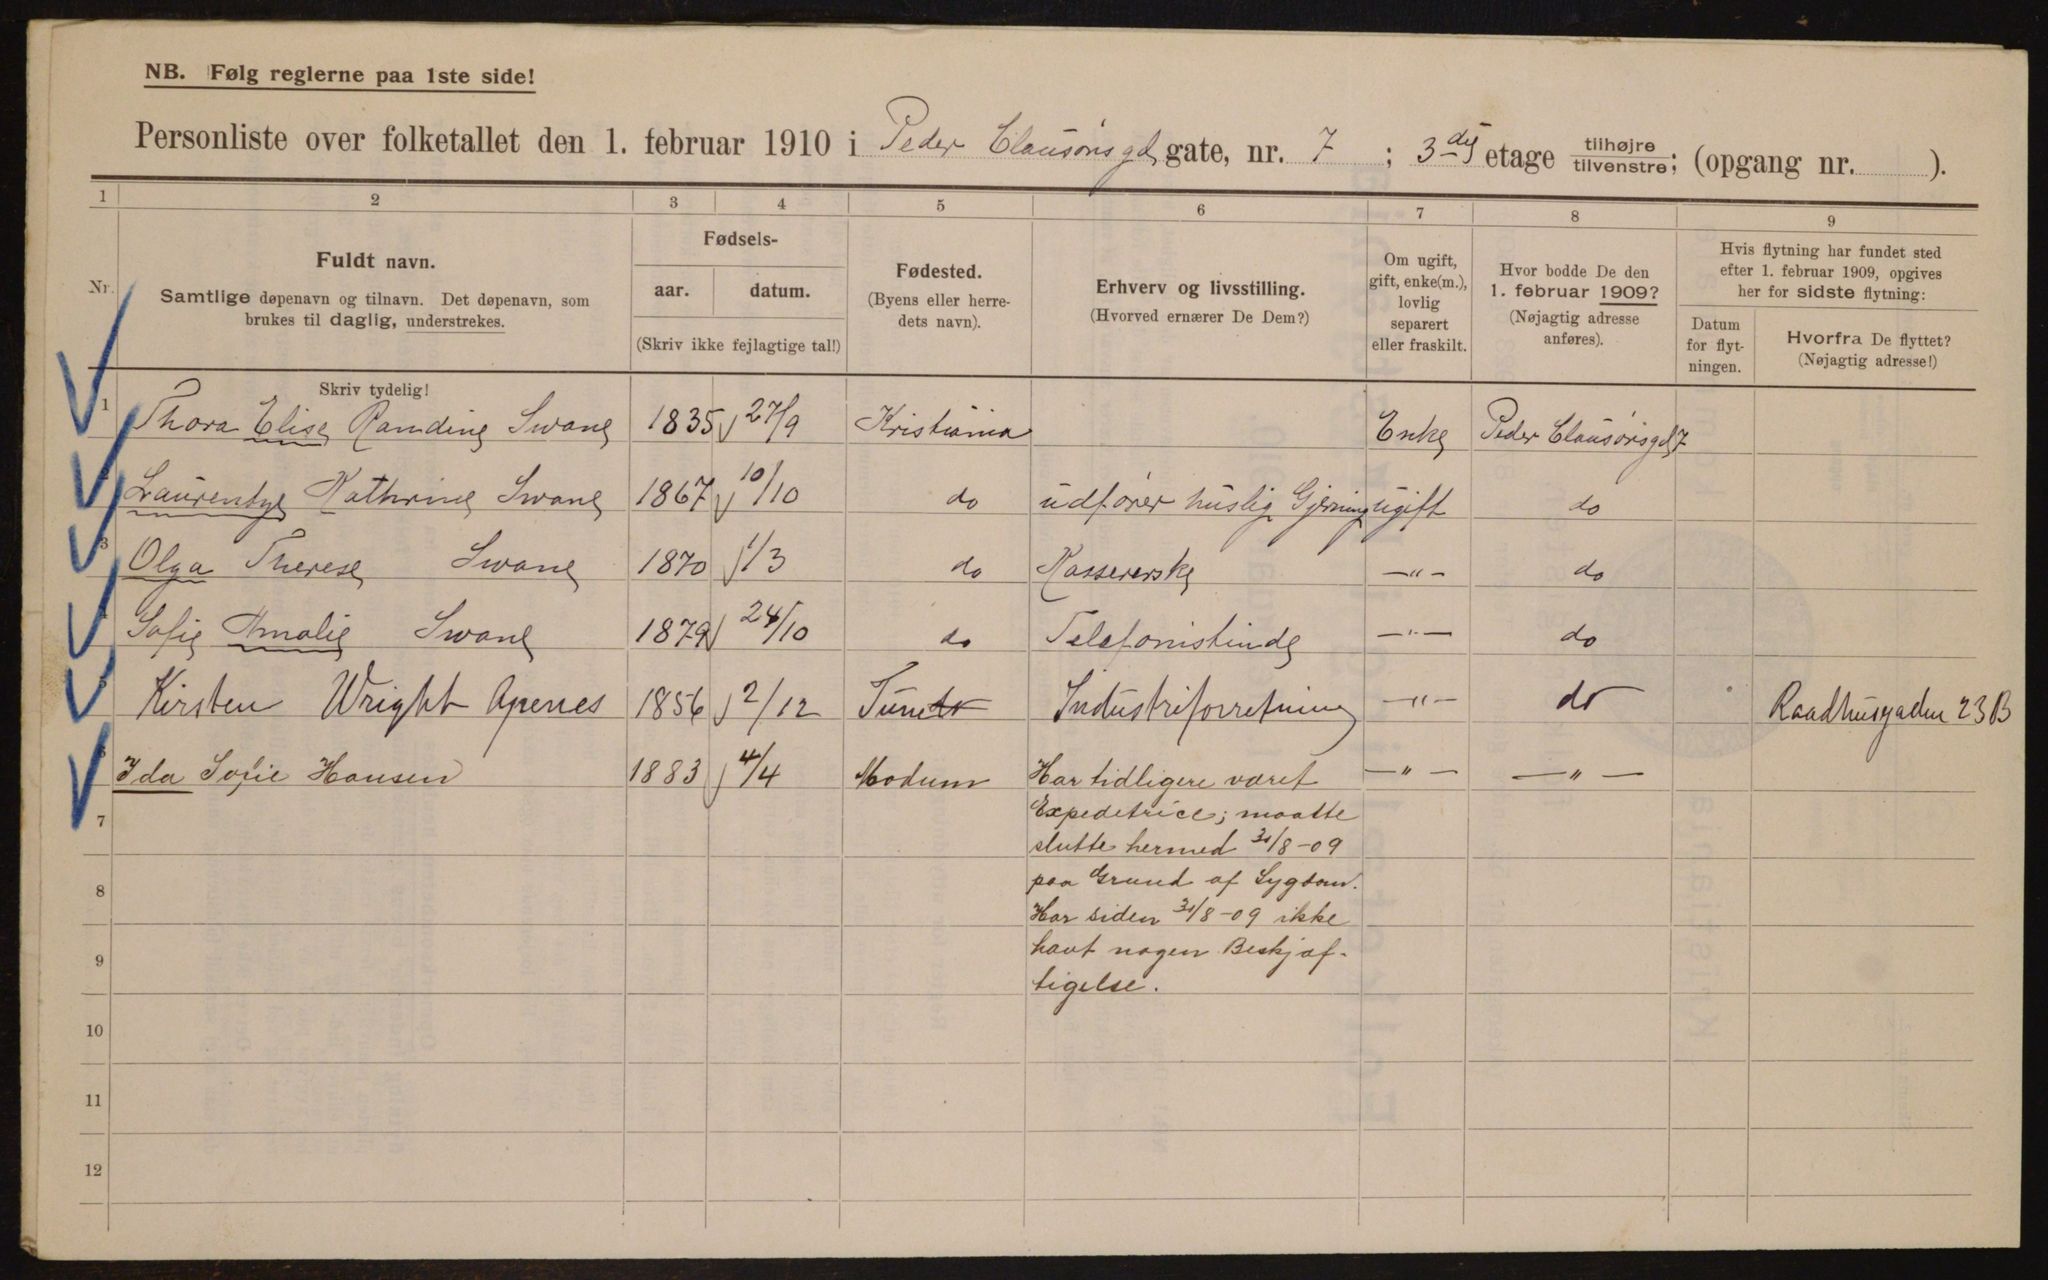 NB. Følg reglerne paa 1ste side!
Personliste over folketallet den 1. februar 1910 i Peder Claussøns gd. gate, nr. 7 ; 3die etage tilhøjre tilvenstre; (opgang nr. ).
1 2 3 4 5 6 7 8 9
Nr.
Fuldt navn.
Samtlige døpenavn og tilnavn. Det døpenavn, som
brukes til daglig, understrekes.
Skriv tydelig!
Fødsels-
aar. datum.
(Skriv ikke fejlagtige tal!)
Fødested.
(Byens eller herre-
dets navn).
Erhverv og livsstilling.
(Hvorved ernærer De Dem?)
Om ugift,
gift, enke(m.),
lovlig
separert
eller fraskilt.
Hvor bodde De den
1. februar 1909?
(Nøjagtig adresse
anføres).
Hvis flytning har fundet sted
efter 1. februar 1909, opgives
her for sidste flytning:
Datum
for flyt-
ningen.
Hvorfra De flyttet?
(Nøjagtig adresse!)
1 Thora Elise Randine Swane 1835 27/9 Kristiania Enke Peder Claussønsgd 7
2 Laurentze Kathrine Swane 1867 10/10 do udfører huslig Gjerning ugift do
3 Olga Therese Swane 1870 1/3 do Kassererske —"— do
4 Sofie Amalie Swane 1879 24/10 do Telefonistinde —"— do
5 Kirsten Wright Apenes 1856 2/12 Tune Industriforretning —"— do Raadhusgaden 23B
6 Ida Sofie Hansen 1883 4/4 Modum Har tidligere været —"— —"—
7 Expeditrice; maatte
slutte hermed 31/8-09
8 paa Grund af Sygdom.
Har siden 31/8-09 ikke
9 havt nogen Beskjæf-
tigelse.
10
11
12